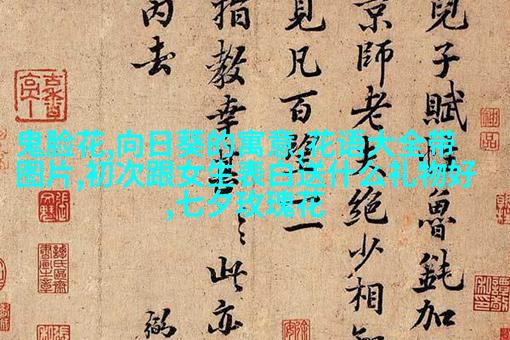 鬼脸花,向日葵的寓意,花语大全带
图片,初次跟女生表白送什么礼物好
,七夕玫瑰花
兒子賦性魯鈍加
京師老夫絕少相知
見凡百一
指教幸甚此亦
去